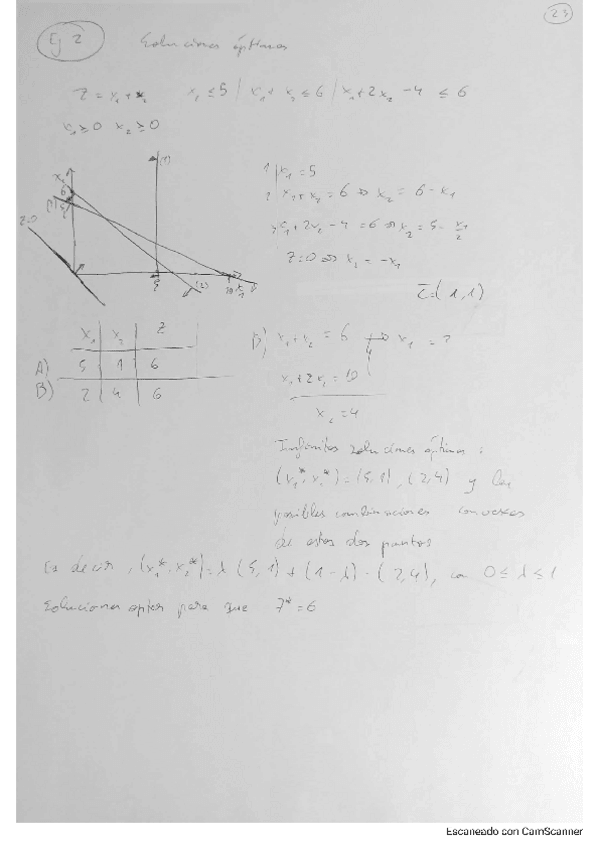 23
Ej 2 Soluciones óptimas
Z = x₁ + x₂ x₁ ≤ 5 / x₁ + x₂ ≤ 6 / x₁ + 2x₂ - 4 ≤ 6
x₁ ≥ 0 x₂ ≥ 0
(1)
x₂
6
5
Z=0
5
(2)
10
x₁
1) x₁ = 5
2 x₁ + x₂ = 6 ⇒ x₂ = 6 - x₁
x₁ + 2x₂ - 4 = 6 ⇒ x₂ = 5 - x₁/2
Z=0 ⇒ x₂ = -x₁
C = (1,1)
x₁ x₂ Z
A) 5 1 6
B) 2 4 6
B) x₁ + x₂ = 6 → x₁ = 2
4
x₁ + 2x₂ = 10
x₂ = 4
Infinitas soluciones óptimas:
(x₁*, x₂*) = (5,1), (2,4) y las
posibles combinaciones convexas
de estos dos puntos
Es decir, (x₁*, x₂*) = λ (5,1) + (1-λ) · (2,4), con 0 ≤ λ ≤ 1
Soluciones para que Z* = 6
Escaneado con CamScanner